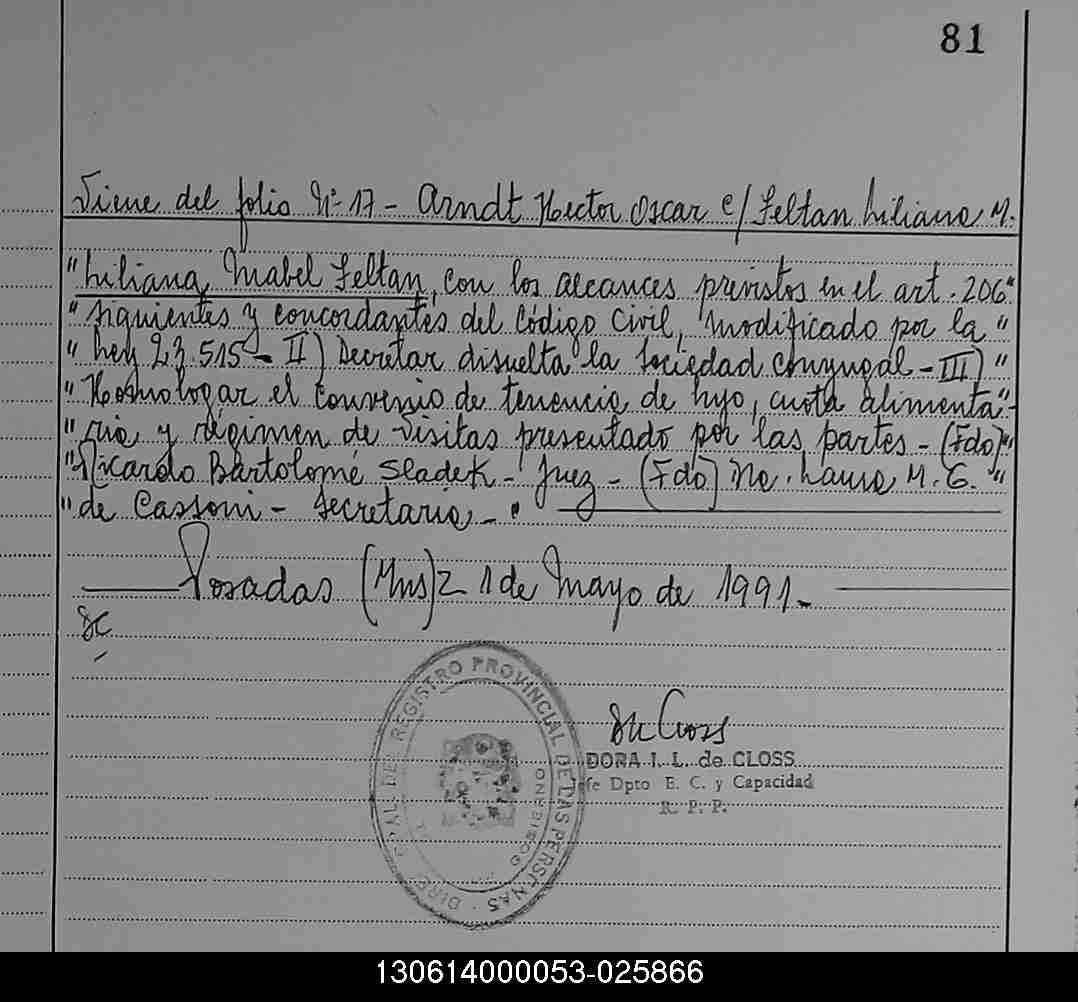 81
Viene del folio Nº 17 - Arndt Hector Oscar c/ Feltan Liliana M.
"Liliana Mabel Feltan, con los alcances previstos en el art. 206"
"siguientes y concordantes del Código Civil, modificado por la"
"Ley 23.515 - II) Decretar disuelta la sociedad conyugal - III)"
"Homologar el convenio de tenencia de hijo, cuota alimenta"-
"ria y régimen de visitas presentado por las partes - (Fdo)"
"Ricardo Bartolomé Sladek - Juez - (Fdo) Laura M. C. "
"de Cassoni - Secretaria - "
Posadas (Mns) 21 de Mayo de 1991.
DORA I. L. de CLOSS
fe Dpto E. C. y Capacidad
R. P. P.
REGISTRO PROVINCIAL DE LAS PERSONAS
GOBIERNO
130614000053-025866